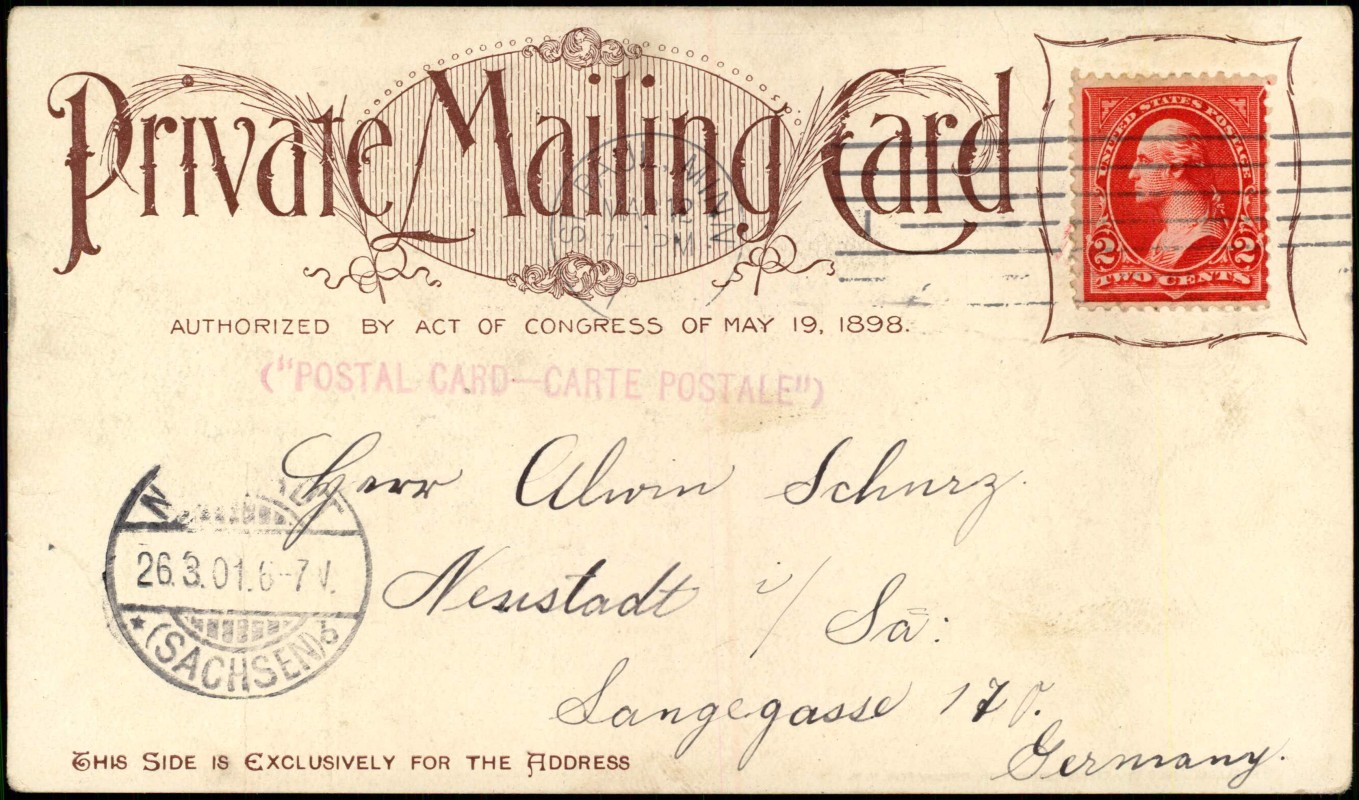 Private Mailing Card
UNITED STATES POSTAGE
2 2
TWO CENTS
ST. PAUL, MINN.
7-PM
AUTHORIZED BY ACT OF CONGRESS OF MAY 19, 1898.
("POSTAL CARD—CARTE POSTALE")
Herr Alwin Schurz
Neustadt i/ Sa:
26.3.01.6-7V.
(SACHSEN) b
Langegasse 170.
Germany.
THIS SIDE IS EXCLUSIVELY FOR THE ADDRESS